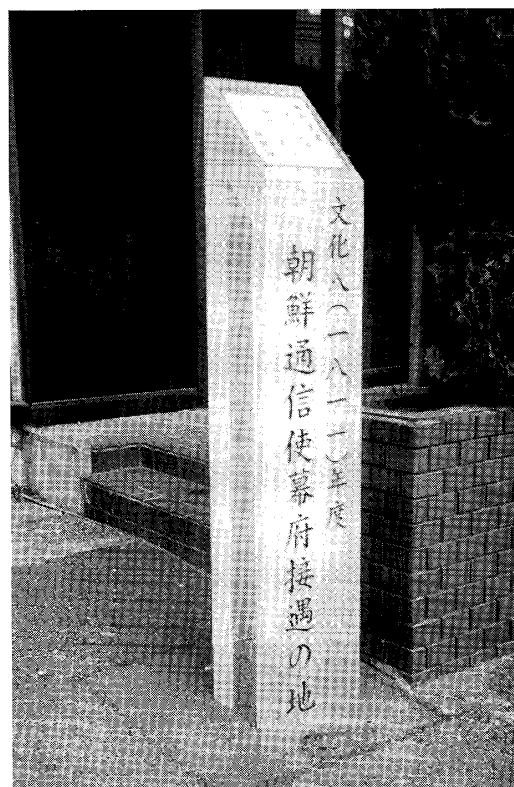 文化八(一八一一)年度
朝鮮通信使幕府接遇の地